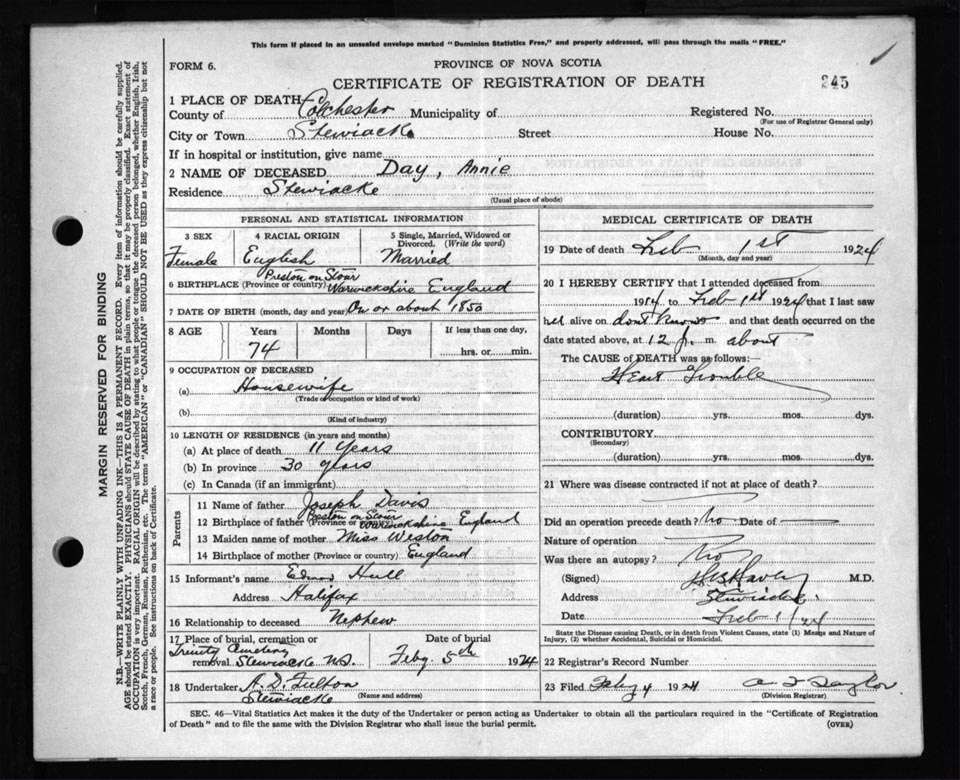 This form if placed in an unsealed envelope marked "Dominion Statistics Free," and properly addressed, will pass through the mails "FREE."
FORM 6.
PROVINCE OF NOVA SCOTIA
CERTIFICATE OF REGISTRATION OF DEATH
245
1 PLACE OF DEATH—
County of Colchester Municipality of Registered No.
(For use of Registrar General only)
City or Town Stewiacke Street House No.
If in hospital or institution, give name
2 NAME OF DECEASED Day, Annie
Residence Stewiacke
(Usual place of abode)
PERSONAL AND STATISTICAL INFORMATION
3 SEX 4 RACIAL ORIGIN 5 Single, Married, Widowed or Divorced. (Write the word)
Female English Married
6 BIRTHPLACE (Province or country) Preston on Stour Warwickshire England
7 DATE OF BIRTH (month, day and year) On or about 1850
8 AGE Years Months Days If less than one day,
74 hrs. or min.
9 OCCUPATION OF DECEASED
(a) Housewife
(Trade occupation or kind of work)
(b)
(Kind of industry)
10 LENGTH OF RESIDENCE (in years and months)
(a) At place of death 11 years
(b) In province 30 years
(c) In Canada (if an immigrant)
Parents
11 Name of father Joseph Davis
12 Birthplace of father (Province or country) Preston on Stour Warwickshire England
13 Maiden name of mother Miss Weston
14 Birthplace of mother (Province or country) England
15 Informant's name Hull
Address Halifax
16 Relationship to deceased Nephew
17 Place of burial, cremation or removal Trinity Cemetery Stewiacke N.S. Date of burial Feby. 5th 1924
18 Undertaker A. D. Fulton
Stewiacke (Name and address)
MEDICAL CERTIFICATE OF DEATH
19 Date of death Feb 1st 1924
(Month, day and year)
20 I HEREBY CERTIFY that I attended deceased from
1914 to Feb 1st 1924 that I last saw
her alive on dont know and that death occurred on the
date stated above, at 12 p. m. about
The CAUSE of DEATH was as follows:—
Heart Trouble
(duration) yrs. mos. dys.
CONTRIBUTORY
(Secondary)
(duration) yrs. mos. dys.
21 Where was disease contracted if not at place of death?
Did an operation precede death? No Date of
Nature of operation
Was there an autopsy? No
(Signed) M.D.
Address Stewiacke.
Date Feb 1/24
State the Disease causing Death, or in death from Violent Causes, state (1) Means and Nature of Injury, (2) whether Accidental, Suicidal or Homicidal.
22 Registrar's Record Number
23 Filed Feby 4 1924 Taylor
(Division Registrar)
SEC. 46—Vital Statistics Act makes it the duty of the Undertaker or person acting as Undertaker to obtain all the particulars required in the "Certificate of Registration
of Death" and to file the same with the Division Registrar who shall issue the burial permit. (OVER)
MARGIN RESERVED FOR BINDING
N.B.—WRITE PLAINLY WITH UNFADING INK—THIS IS A PERMANENT RECORD. Every item of information should be carefully supplied.
AGE should be stated EXACTLY. PHYSICIANS should STATE CAUSE OF DEATH in plain terms, so that it may be properly classified. Exact statement of
OCCUPATION is very important. RACIAL ORIGIN will be described by stating to what people or tongue the deceased person belonged, whether English, Irish,
Scotch, French, German, Russian, Ruthenian, etc. The terms "AMERICAN" or "CANADIAN" SHOULD NOT BE USED as they express citizenship but not
a race or people. See instructions on back of Certificate.